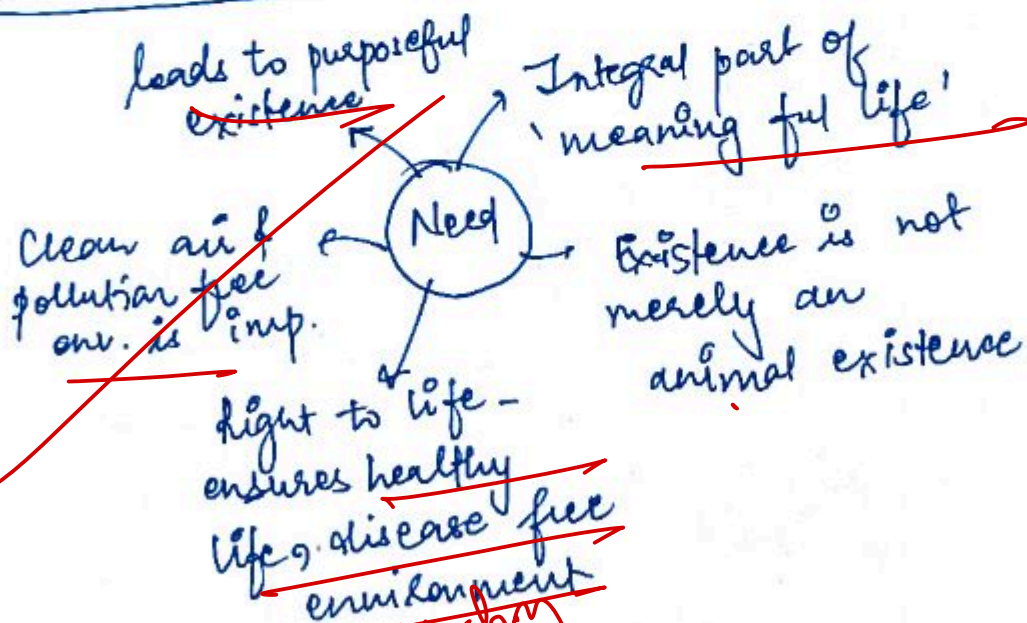 leads to purposeful
existence
Integral part of
'meaning ful life'
Need
Clean air &
pollution free
env. is imp.
Existence is not
merely an
animal existence
Right to life -
ensures healthy
life, disease free
environment